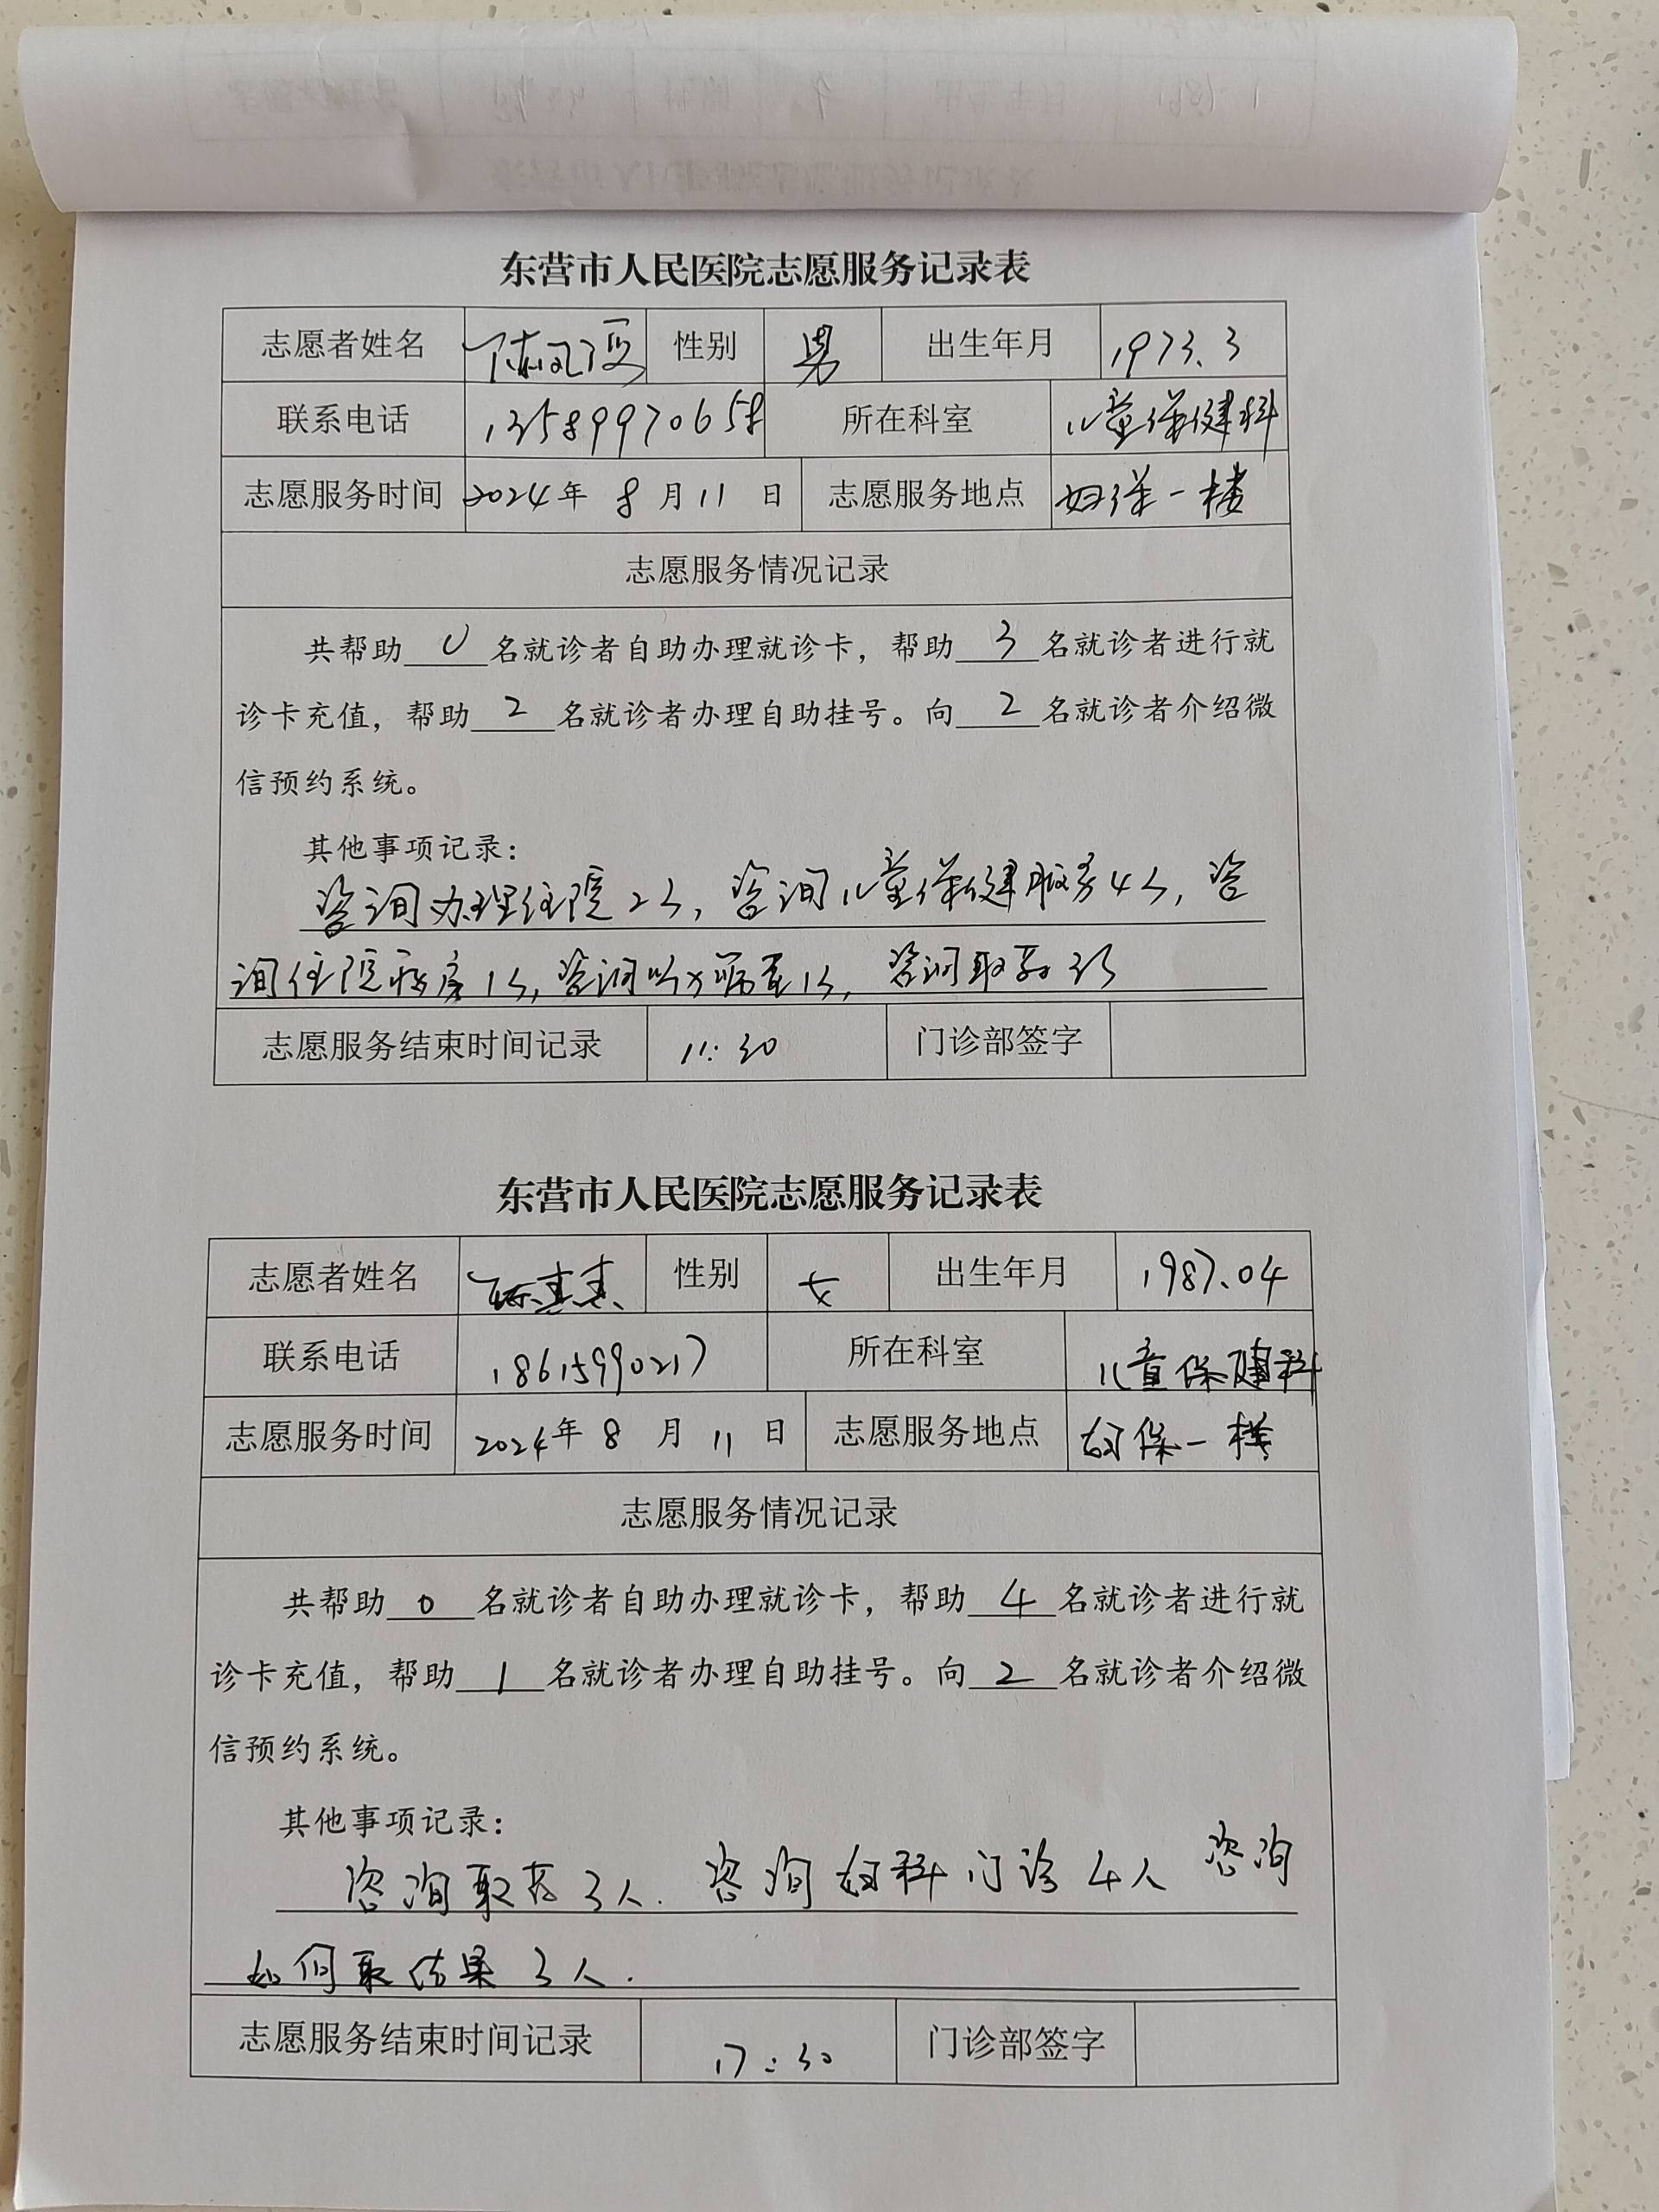 东营市人民医院志愿服务记录表
志愿者姓名 性别 男 出生年月 1973.3
联系电话 13589970658 所在科室 儿童保健科
志愿服务时间 2024年 8 月 11 日 志愿服务地点 妇保一楼
志愿服务情况记录
共帮助 0 名就诊者自助办理就诊卡，帮助 3 名就诊者进行就
诊卡充值，帮助 2 名就诊者办理自助挂号。向 2 名就诊者介绍微
信预约系统。
其他事项记录：
咨询办理住院2人，咨询儿童保健服务4人，咨
询住院病房1人，咨询听力筛查1人，咨询取药3人
志愿服务结束时间记录 11:30 门诊部签字
东营市人民医院志愿服务记录表
志愿者姓名 性别 女 出生年月 1987.04
联系电话 18615990217 所在科室 儿童保健科
志愿服务时间 2024年 8 月 11 日 志愿服务地点 妇保一楼
志愿服务情况记录
共帮助 0 名就诊者自助办理就诊卡，帮助 4 名就诊者进行就
诊卡充值，帮助 1 名就诊者办理自助挂号。向 2 名就诊者介绍微
信预约系统。
其他事项记录：
咨询取药3人. 咨询妇科门诊4人 咨询
如何取结果3人.
志愿服务结束时间记录 17:30 门诊部签字